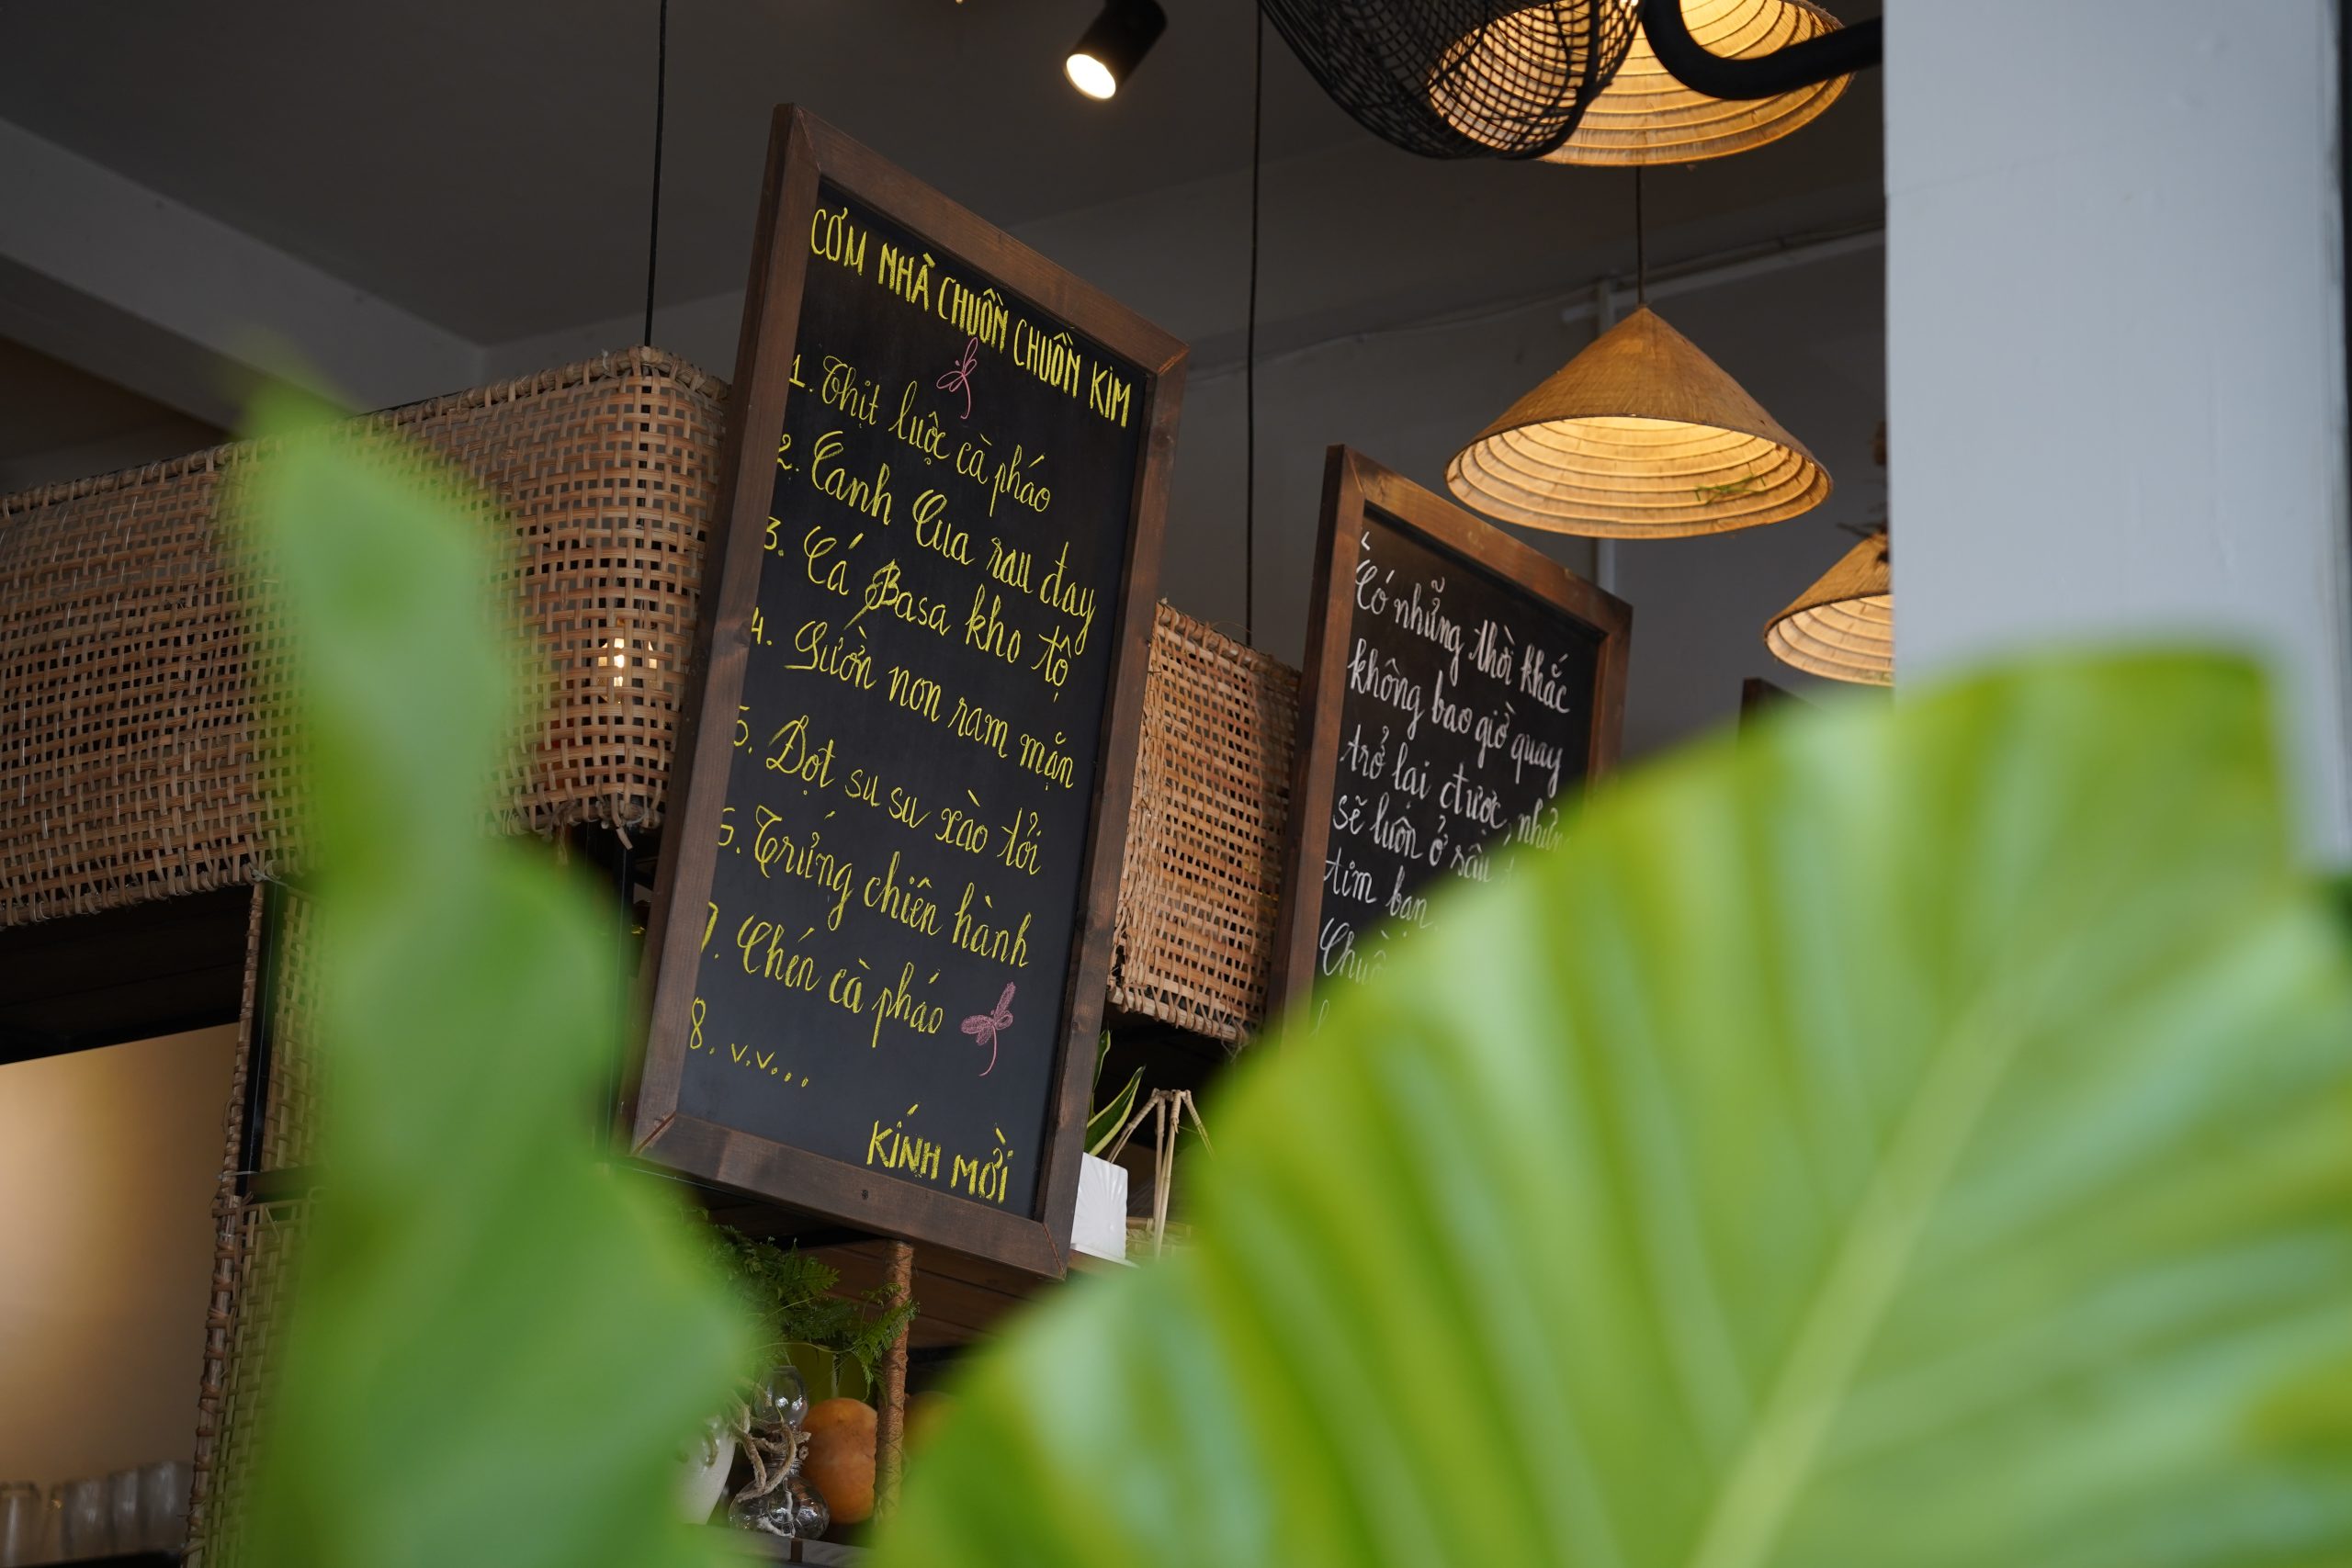 CƠM NHÀ CHUỒN CHUỒN KIM
1. Thịt luộc cà pháo
2. Canh Cua rau đay
3. Cá Basa kho tộ
4. Sườn non ram mặn
5. Đọt su su xào tỏi
6. Trứng chiên hành
7. Chén cà pháo
8. v.v...
KÍNH MỜI
Có những thời khắc
không bao giờ quay
trở lại được, nhưng
sẽ luôn ở sâu
tim bạn